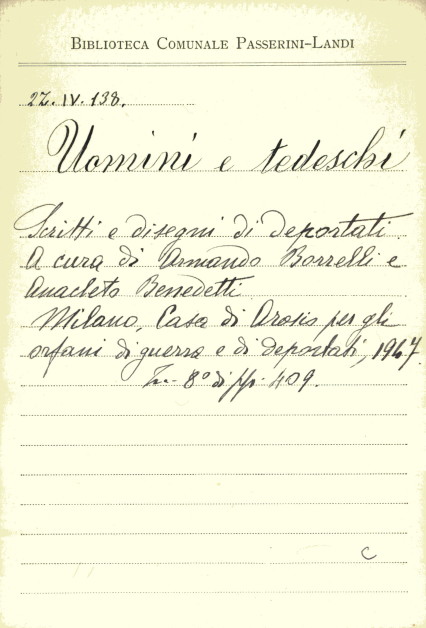 BIBLIOTECA COMUNALE PASSERINI-LANDI
2Z.IV.138.
Uomini e tedeschi
Scritti e disegni di deportati.
A cura di Armando Borrelli e
Anacleto Benedetti.
Milano, Casa di Arosio per gli
orfani di guerra e di deportati, 1947.
In-8° di pp. 409.
C